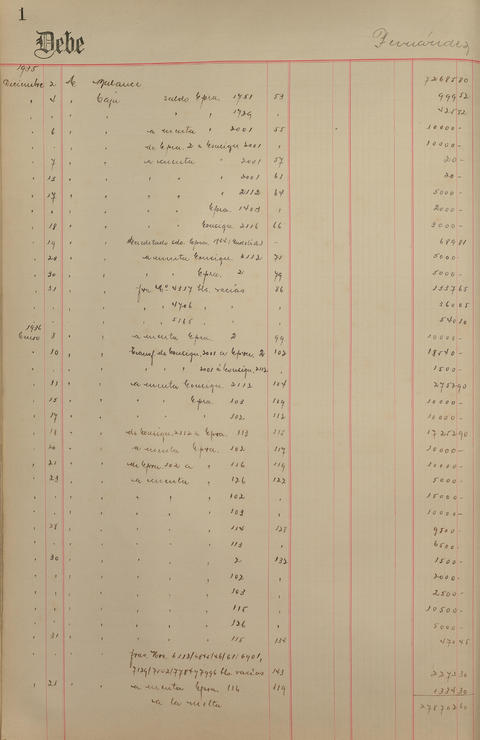 1
Debe
Fernández
1935
Diciembre 2 Balance 7268580
" 4 " Caja saldo Epra. 1751 53 99952
" " " " " 1729 " 42552
" 6 " a cuenta " 2001 55 10000-
" " " de Epra. 2 a Consign. 2001 " 10000-
" 7 " a cuenta " 2001 57 20-
" 15 " " " 2001 61 20-
" 17 " " " 2112 64 5000-
" " " " Epra. 1401 " 2000-
" 18 " " Consign. 2116 66 3000-
" 19 " sdo. Epra. 68981
" 28 " a cuenta Consign. 2112 5000-
" 30 " " " Epra. 2 79 5000-
" 31 " fra. Nº 4557 tls. vacías 86 133765
" " " " 4706 " " 36005
" " " " 5165 " " 54010
1936
Enero 8 " a cuenta Epra. 2 99 10000-
" 10 " Transf. de Consign. 2001 a Epra. 2 102 18540-
" " " " " 2001 á Consign. 2112 " 1500-
" 11 " a cuenta Consign. 2112 104 275790
" 15 " " " Epra. 103 109 10000-
" 17 " " " " 102 112 10000-
" 18 " de Consign. 2112 a Epra. 113 115 1725290
" 20 " a cuenta Epra. 102 117 10000-
" 21 " de Epra. 102 a " 116 119 10000-
" 23 " a cuenta " 126 122 5000-
" " " " " 102 " 15000-
" " " " " 103 " 10000-
" 28 " " " 114 127 9500-
" " " " " 113 " 6500-
" 30 " " " 2 132 1500-
" " " " " 102 " 2000-
" " " " " 103 " 2500-
" " " " " 115 " 10500-
" " " " " 126 " 5000-
" 31 " " " 115 134 47045
fras. Nos.
tls. vacías 143 227230
" 21 " a cuenta Epra. 116 119 133430
a la vuelta 27870260